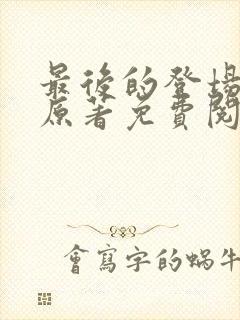 最後的登場
原著免費閱
會寫字的蝸牛